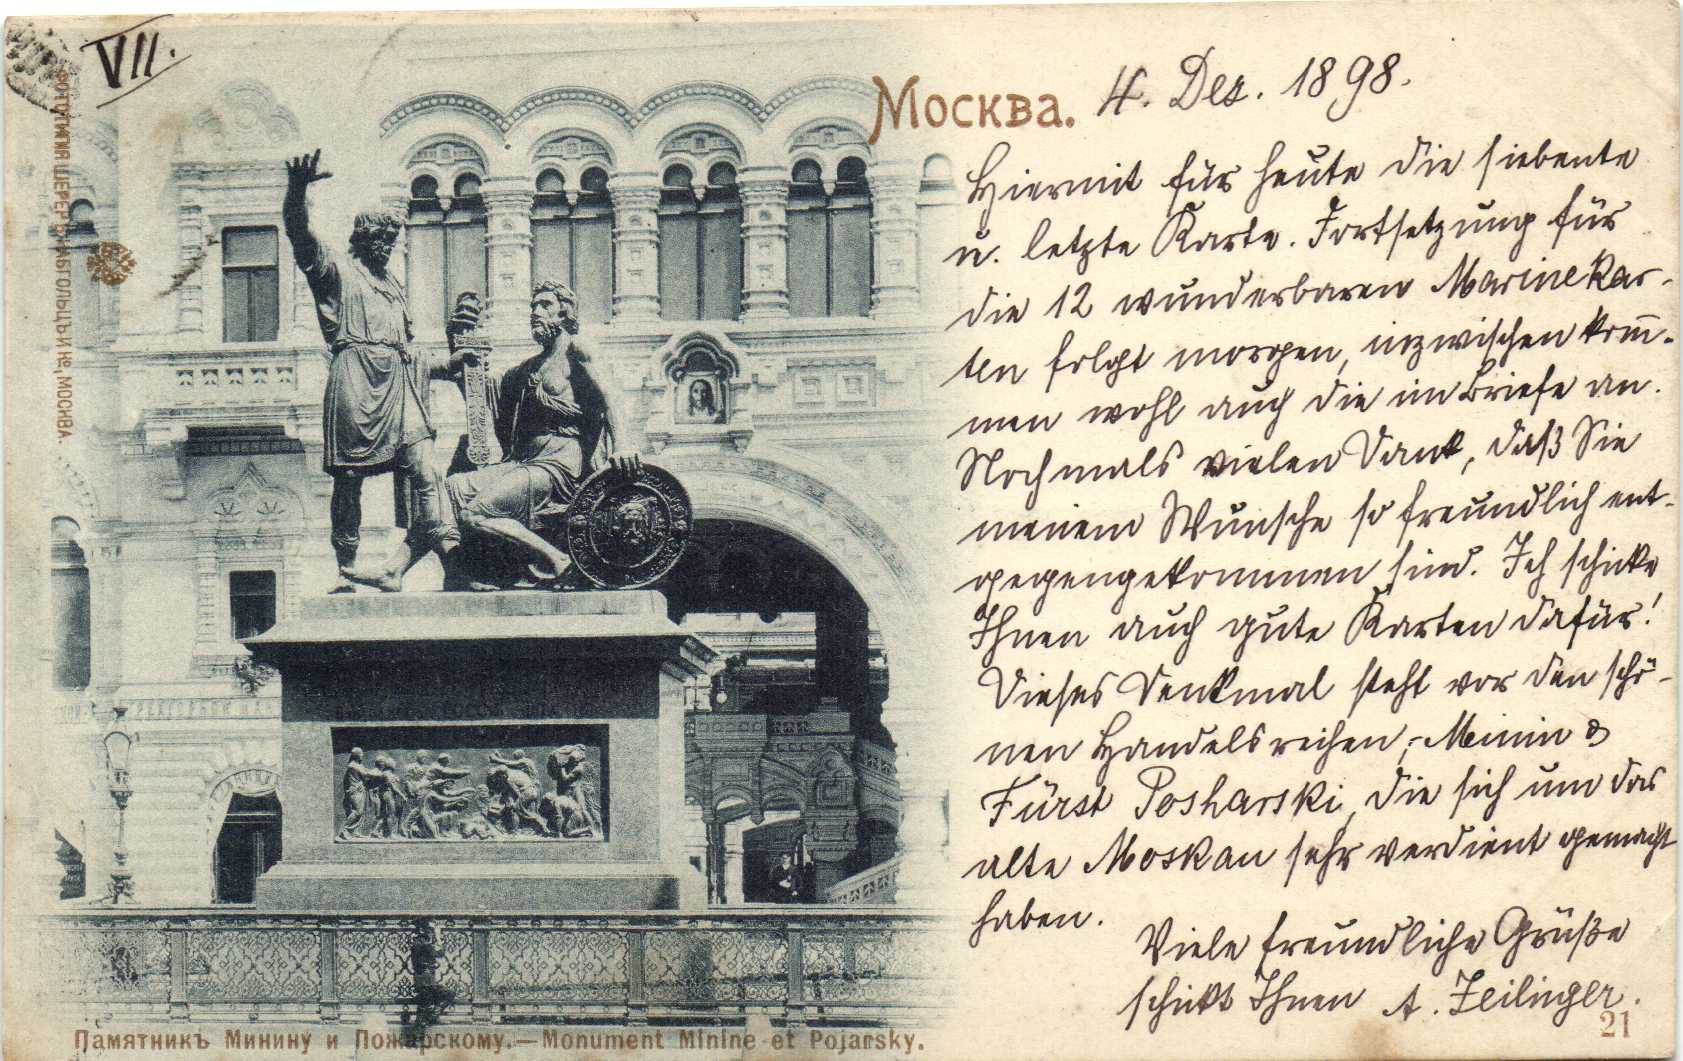 VII.
Москва.
4. Dez. 1898.
Hiermit für heute die siebente
u. letzte Karte. Fortsetzung für
die 12 wunderbaren Marinekar-
ten folgt morgen, inzwischen kom̄-
men wohl auch die im Briefe an.
Nochmals vielen Dank, daß Sie
meinem Wunsche so freundlich ent-
gegengekommen sind. Ich schicke
Ihnen auch gute Karten dafür!
Dieses Denkmal steht vor den schö-
nen Handelsreihen; Minin &
Fürst Posharski, die sich um das
alte Moskau sehr verdient gemacht
haben.
Viele freundliche Grüße
schickt Ihnen A. Zeilinger.
21
Памятникъ Минину и Пожарскому.—Monument Minine et Pojarsky.
ФОТОТИПІЯ ШЕРЕРЪ, НАБГОЛЬЦЪ И Ко, МОСКВА